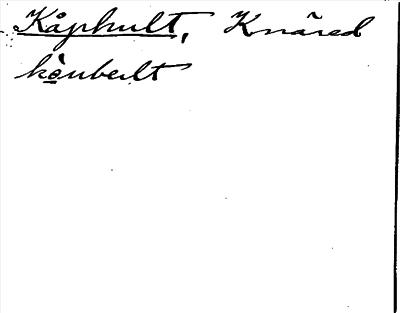 Kåphult, Knäred
ko̱̊nbeḷt